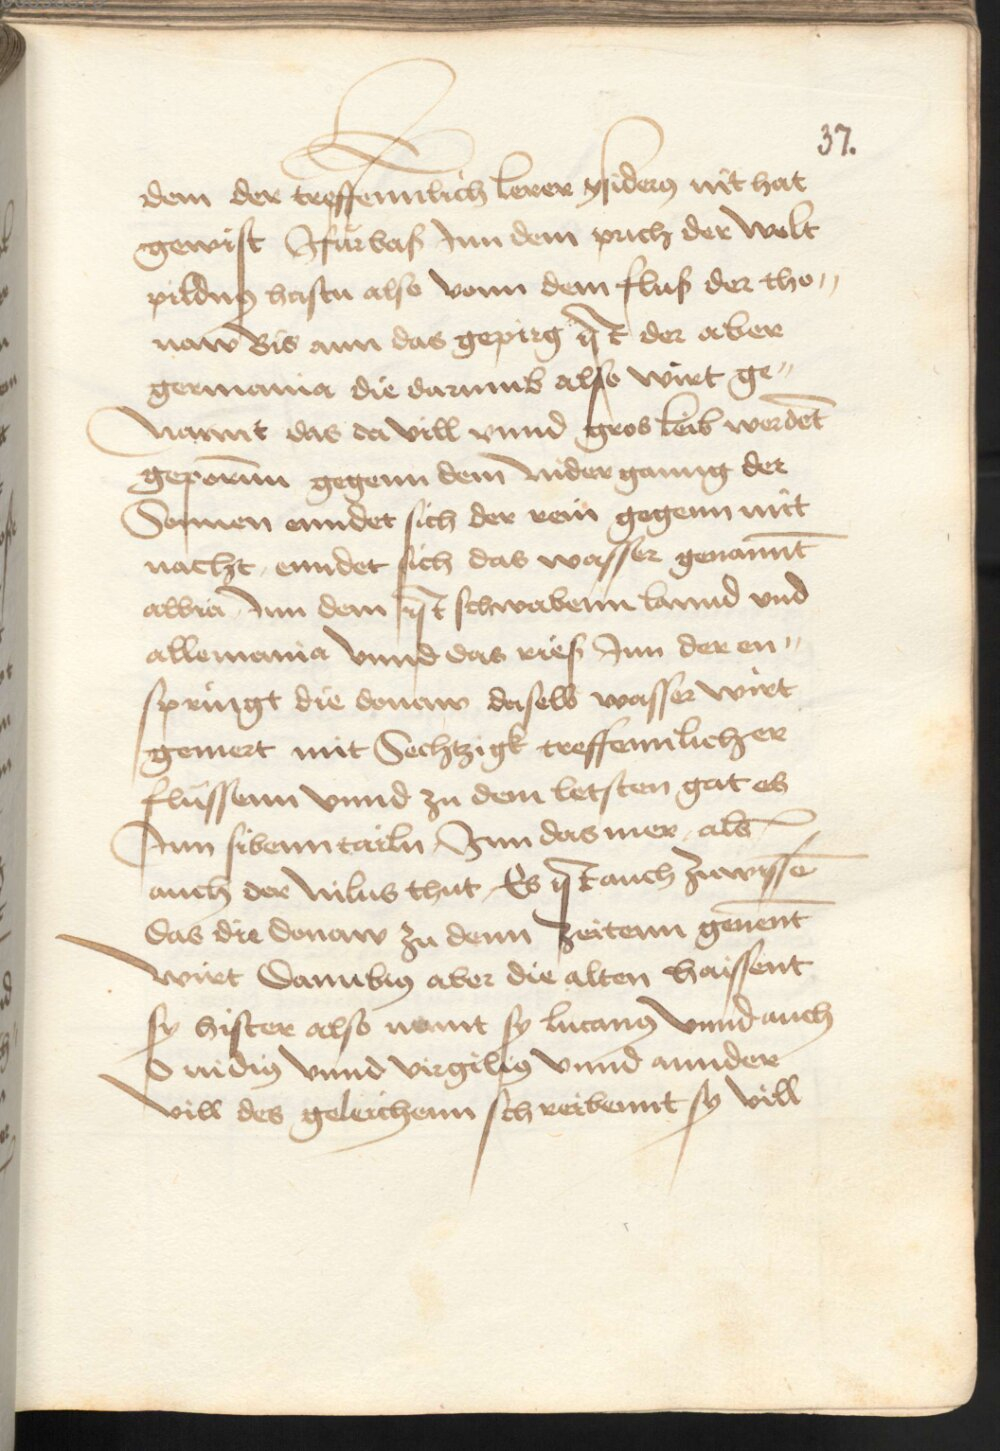 37.
dem der treffennlich lerer ysiderꝰ nit hat
gewist Fürbas Inn dem puch der Welt
pildnꝰ hastu also vonn dem flus der tho„
naw Bis ann das gepirg ist der ober
germania die darumb also wirt ge„
Nannt das da vill vnnd gros leib werdēt
geporn̄n gegenn dem Nider ganng der
Sonnen enndet sich der rein gegenn mit
nacht, enndet sich das wasser genann̄t
albia, Inn dem ist schwabenn lannd vnd
allemania Vnnd das ries Inn der en„
springt die donaw daselb wasser wirt
gemert mit Sechtzigk treffennlicher
flüssenn Vnnd zu dem letsten gat es
Inn sibenn tailn Inn das mer, als
auch der Nilus thut, Es ist auch zuwyssē
das die donaw zu denn zeitenn genen̄t
wirt Danubiꝰ aber die alten haissent
sy hister also nennt sy lucanꝰ Vnnd auch
Ouidiꝰ vnnd virgiliꝰ vnnd annder
vill des geleichenn schreibennt sy vill